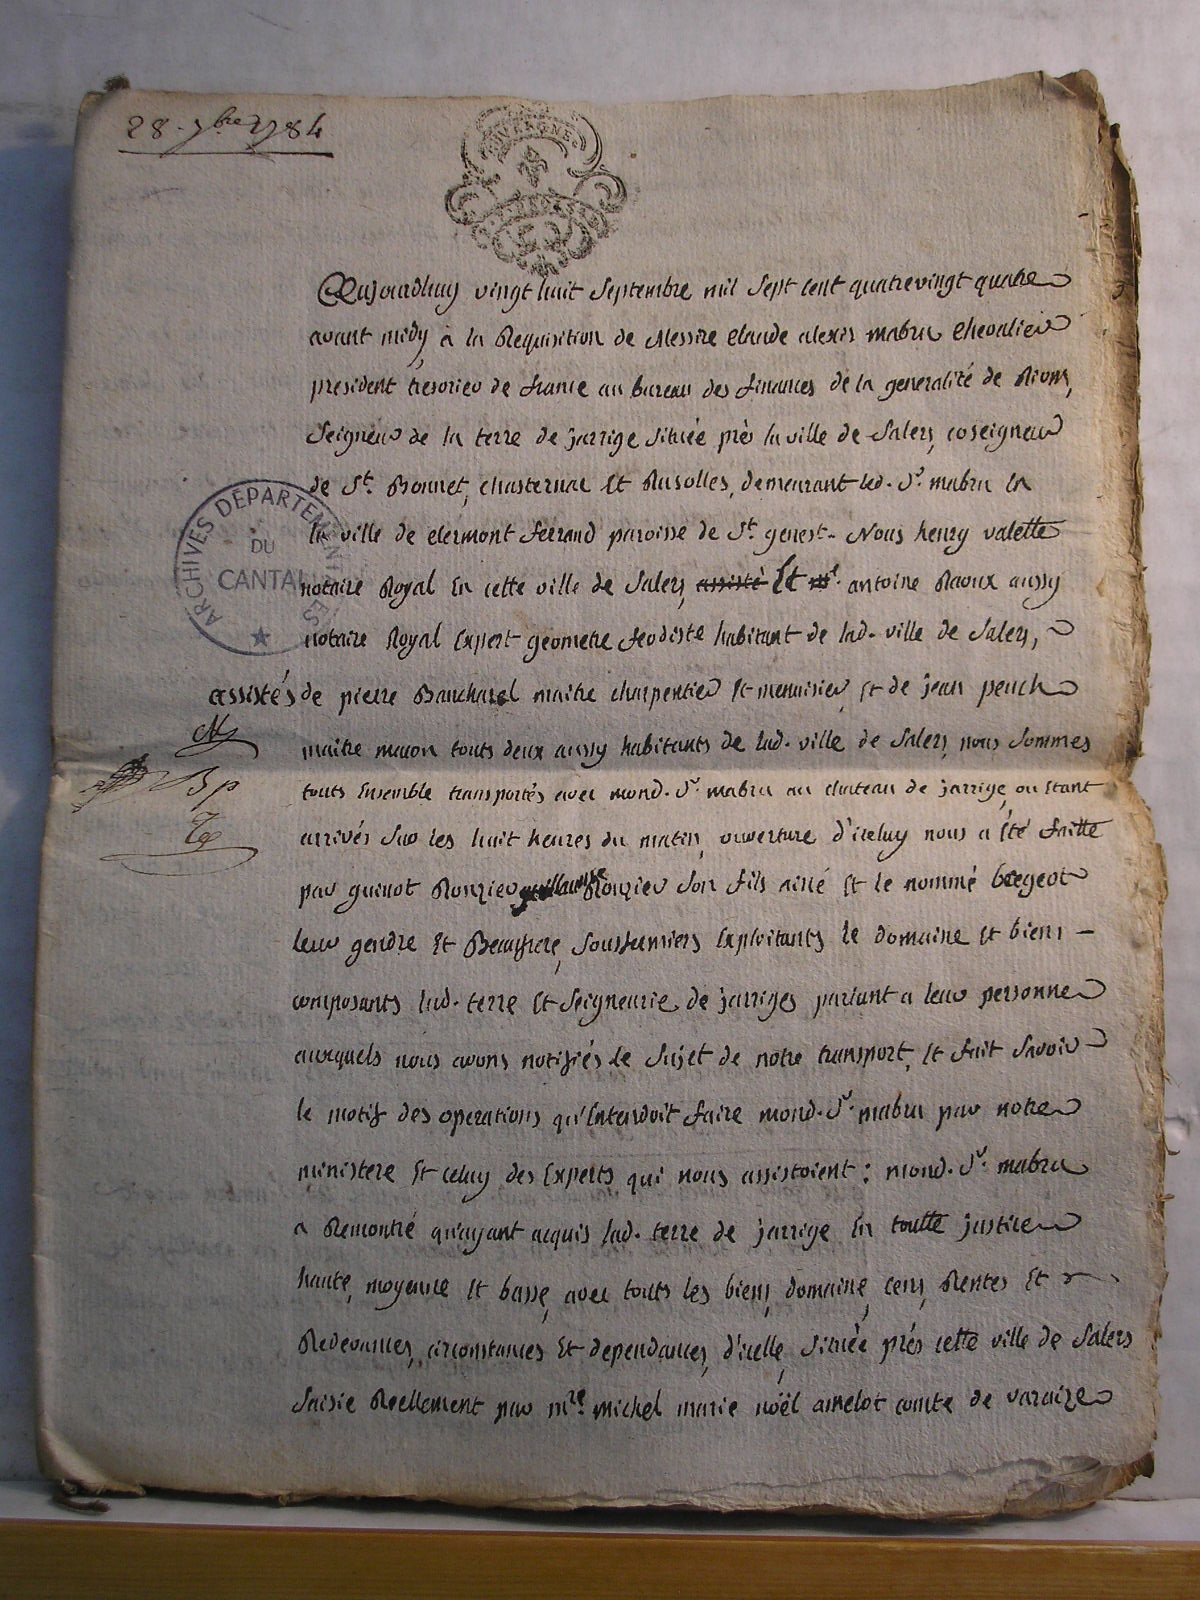 28 7bre 1784
AUVERGNE
ARCHIVES DEPARTEMENTALES
DU
CANTAL
Aujourdhuy vingt huit Septembre mil Sept cent quatrevingt quatre
avant midy, à la Requisition de Messire Claude alexis mabru Chevalier
president tresorier de france au bureau des finances de la generalité de Riom,
Seigneur de la terre de jarrige Située près la ville de Salers, coseigneur
de St. Bonnet, chasternac Et Rusolles, demeurant led. Sr. mabru En
la ville de clermont ferrand paroisse de St. genest. Nous henry valette
notaire Royal En cette ville de Salers, assisté Et me. antoine Raoux aussy
notaire Royal Expert geometre feodiste habitant de lad. ville de Salers,
assistés de pierre Bancharel maitre charpentier Et menuisier, Et de jean peuch
maitre macon touts deux aussy habitants de lad. ville de Salers, nous Sommes
touts Ensemble transportés avec mond. Sr. mabru au chateau de jarrige, ou Etant
B p
arrivés Sur les huit heures du matin, ouverture d'iceluy nous a Eté faitte
par guinot Ronzier guillaume Ronzier Son fils ainé Et le nommé bregeot
leur gendre Et Beaufrere, Sousfermiers Exploitants le domaine Et biens
composants lad. terre Et Seigneurie de jarriges parlant a leur personne
auxquels nous avons notifiés le Sujet de notre transport, Et fait Savoir
le motif des operations qu'Entendoit faire mond. Sr. mabru par notre
ministere Et celuy des Experts qui nous assistoient : mond. Sr. mabru
a Remontré qu'ayant acquis lad. terre de jarrige En toutte justice
haute, moyenne Et basse, avec touts les biens, domaine, cens, Rentes Et
Redevances, circonstances Et dependances, d'icelle, Située près cette ville de Salers
Saisie Réellement par mre. michel marie noël amelot comte de varaize